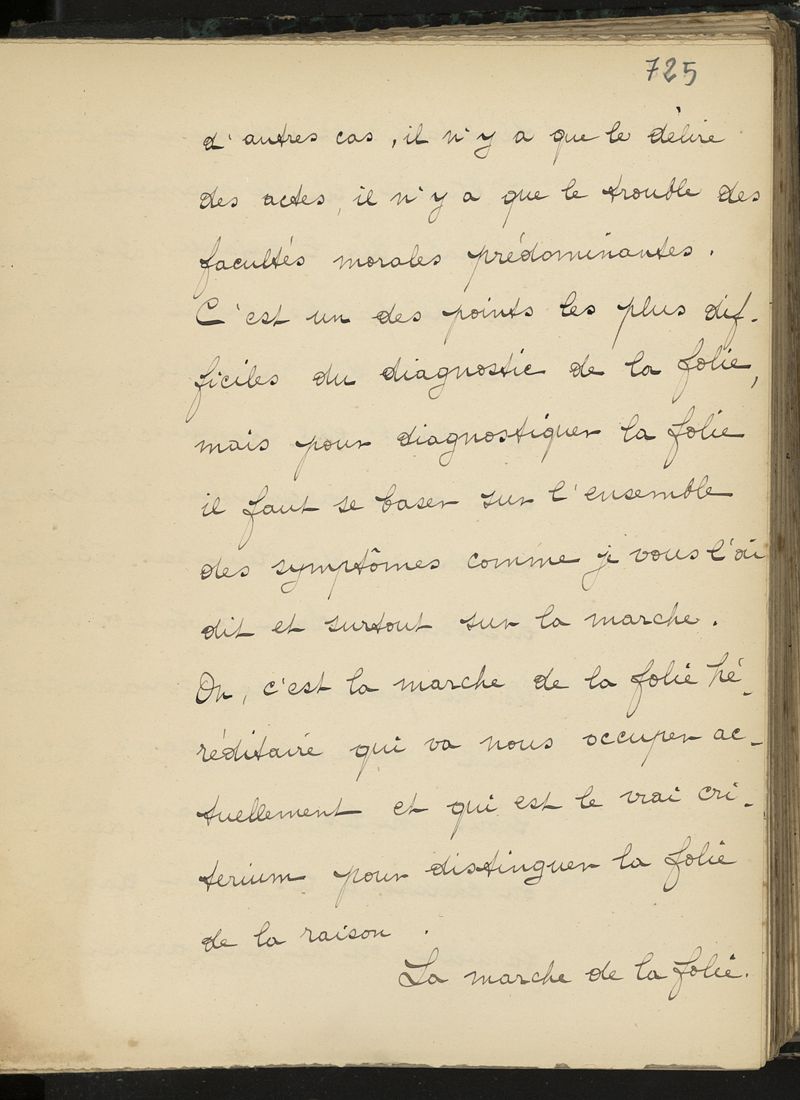 725
d'autres cas, il n'y a que le délire
des actes, il n'y a que le trouble des
facultés morales prédominantes.
C'est un des points les plus dif-
ficiles du diagnostic de la folie,
mais pour diagnostiquer la folie
il faut se baser sur l'ensemble
des symptômes comme je vous l'ai
dit et surtout sur la marche.
Or, c'est la marche de la folie hé-
réditaire qui va nous occuper ac-
tuellement et qui est le vrai cri-
terium pour distinguer la folie
de la raison.
La marche de la folie.